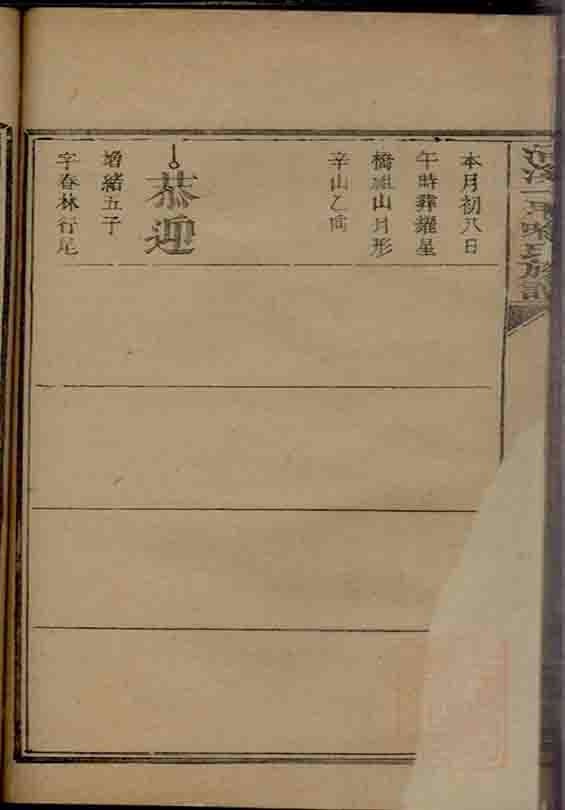 本月初八日
午時葬耀星
橋祖山月形
辛山乙向
恭迎
增緒五子
字春林行尾